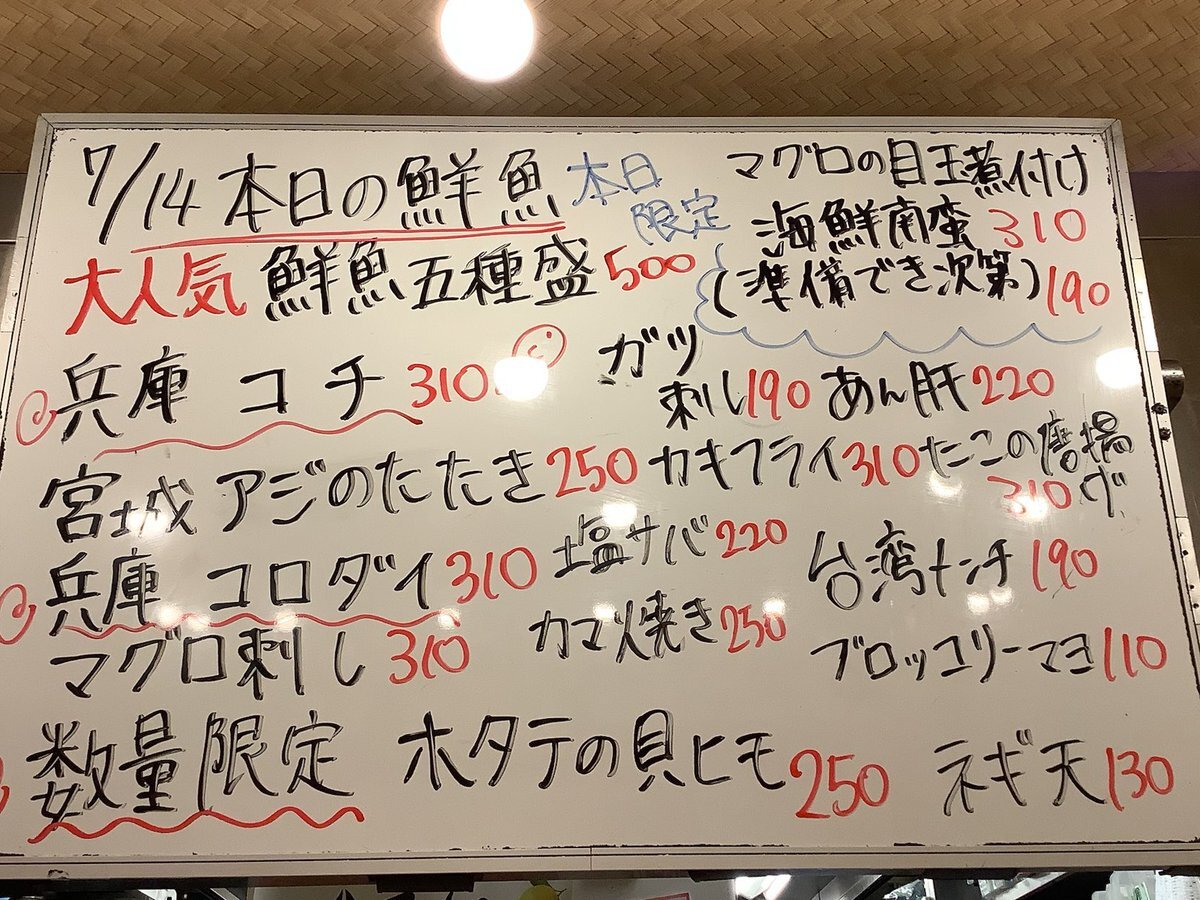 7/14 本日の鮮魚
大人気 鮮魚五種盛 500
兵庫 コチ 310
宮城 アジのたたき 250
兵庫 コロダイ 310
マグロ刺し 310
数量限定 ホタテの貝ヒモ 250
本日
限定
マグロの目玉煮付け
310
海鮮南蛮
(準備でき次第) 190
ガツ
刺し 190
あん肝 220
カキフライ 310
たこの唐揚
げ 310
塩サバ 220
台湾メンチ 190
カマ焼き 250
ブロッコリーマヨ 110
ネギ天 130